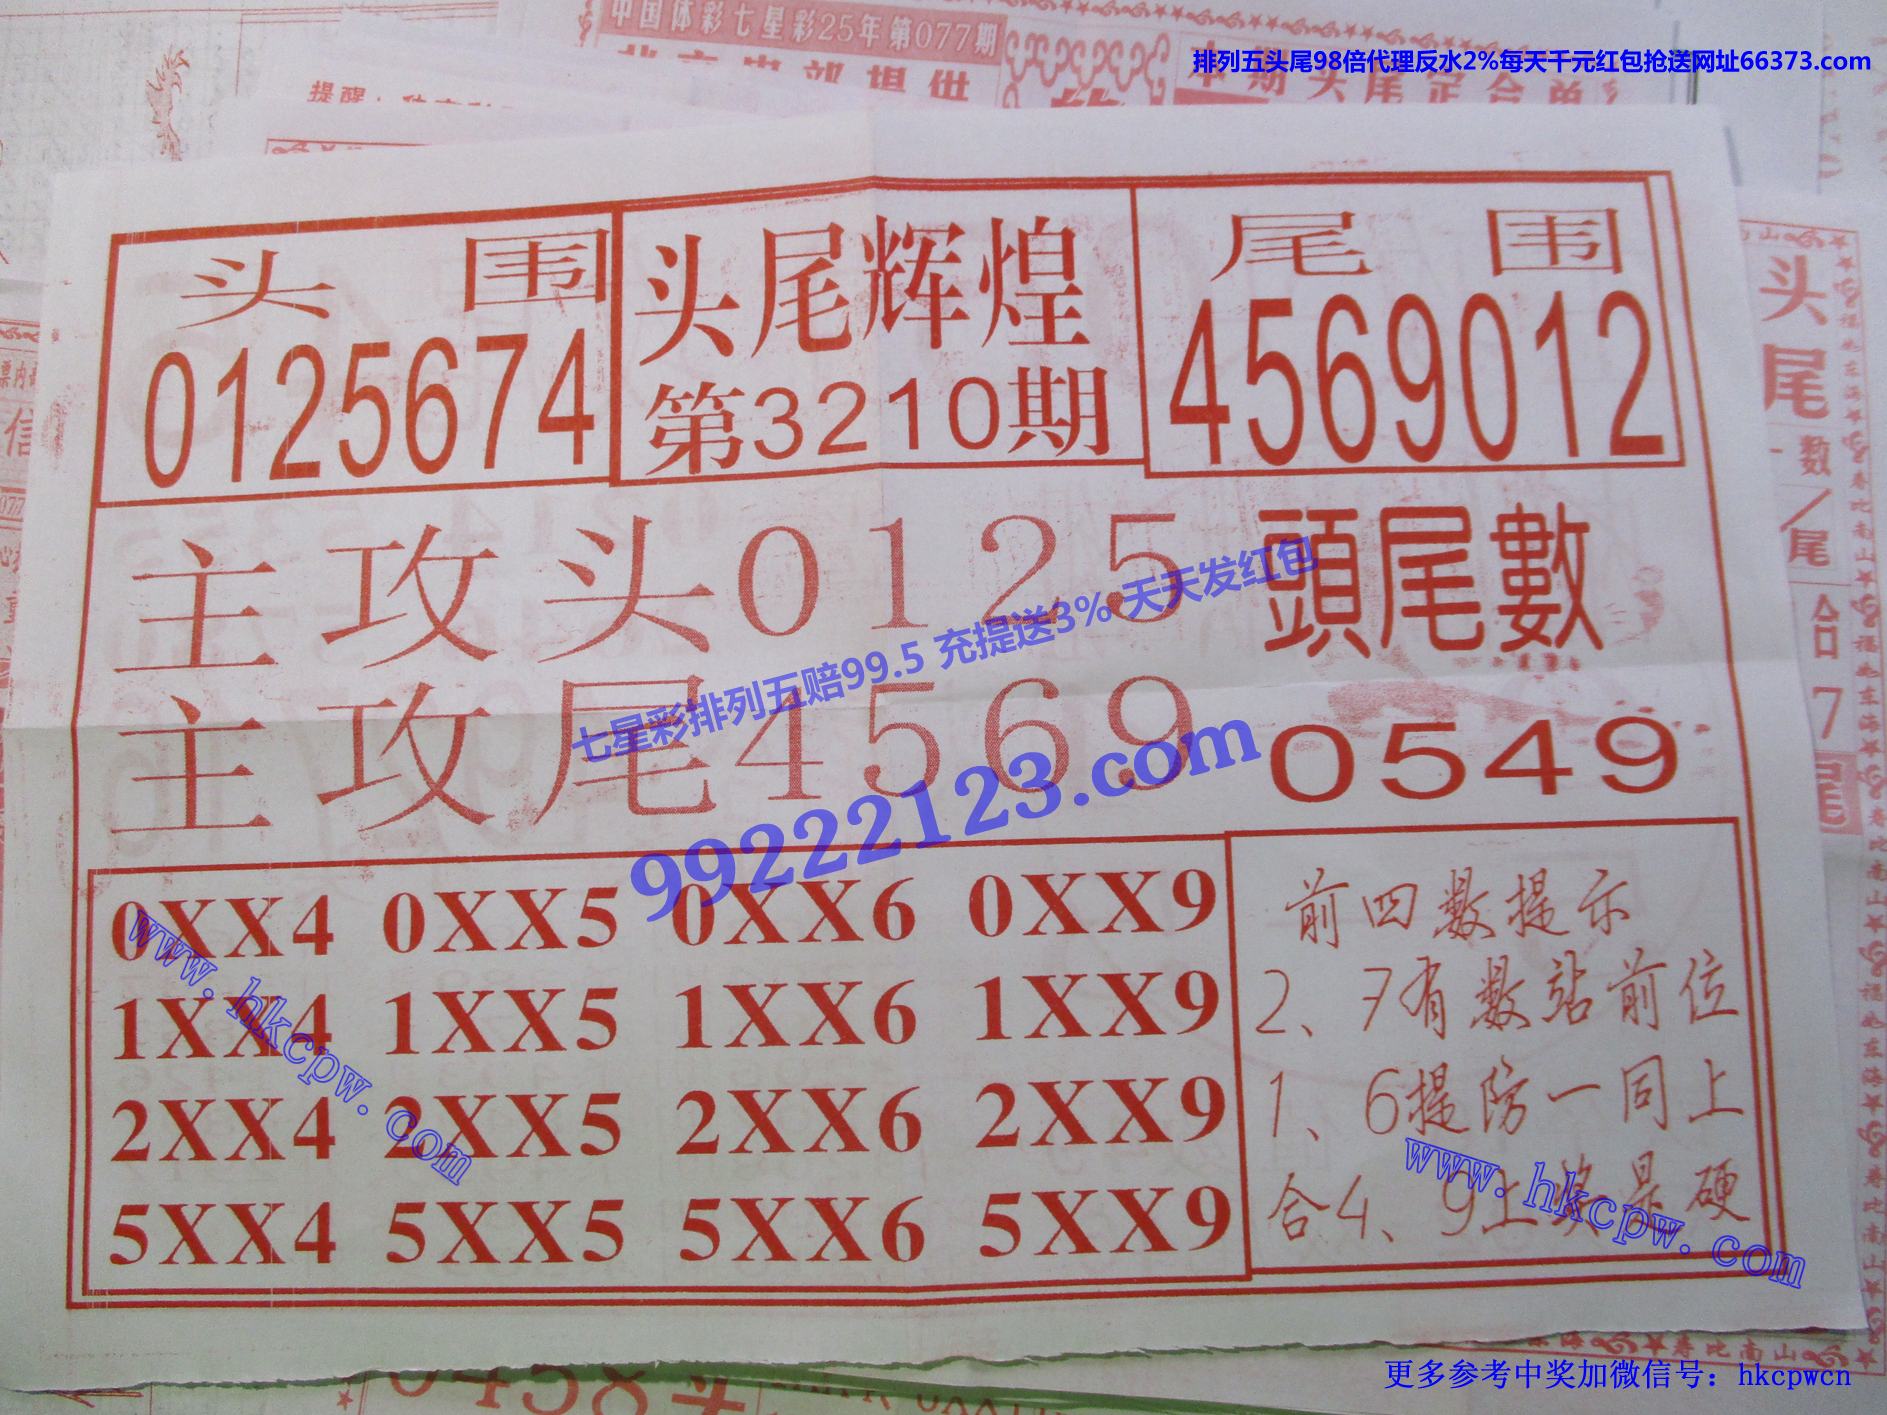 中国体彩七星彩25年第077期
排列五头尾98倍代理反水2%每天千元红包抢送网址66373.com
头围
0125674
头尾辉煌
第3210期
尾围
4569012
主攻头0125
頭尾數
七星彩排列五赔99.5 充提送3% 天天发红包
主攻尾4569
0549
99222123.com
0XX4 0XX5 0XX6 0XX9
1XX4 1XX5 1XX6 1XX9
2XX4 2XX5 2XX6 2XX9
5XX4 5XX5 5XX6 5XX9
www.hkcpw.com
前四数提示
2、7有数站前位
1、6提防一同上
合4、9上奖是硬
www.hkcpw.com
头
尾
数
尾
合
7
尾
更多参考中奖加微信号：hkcpwcn